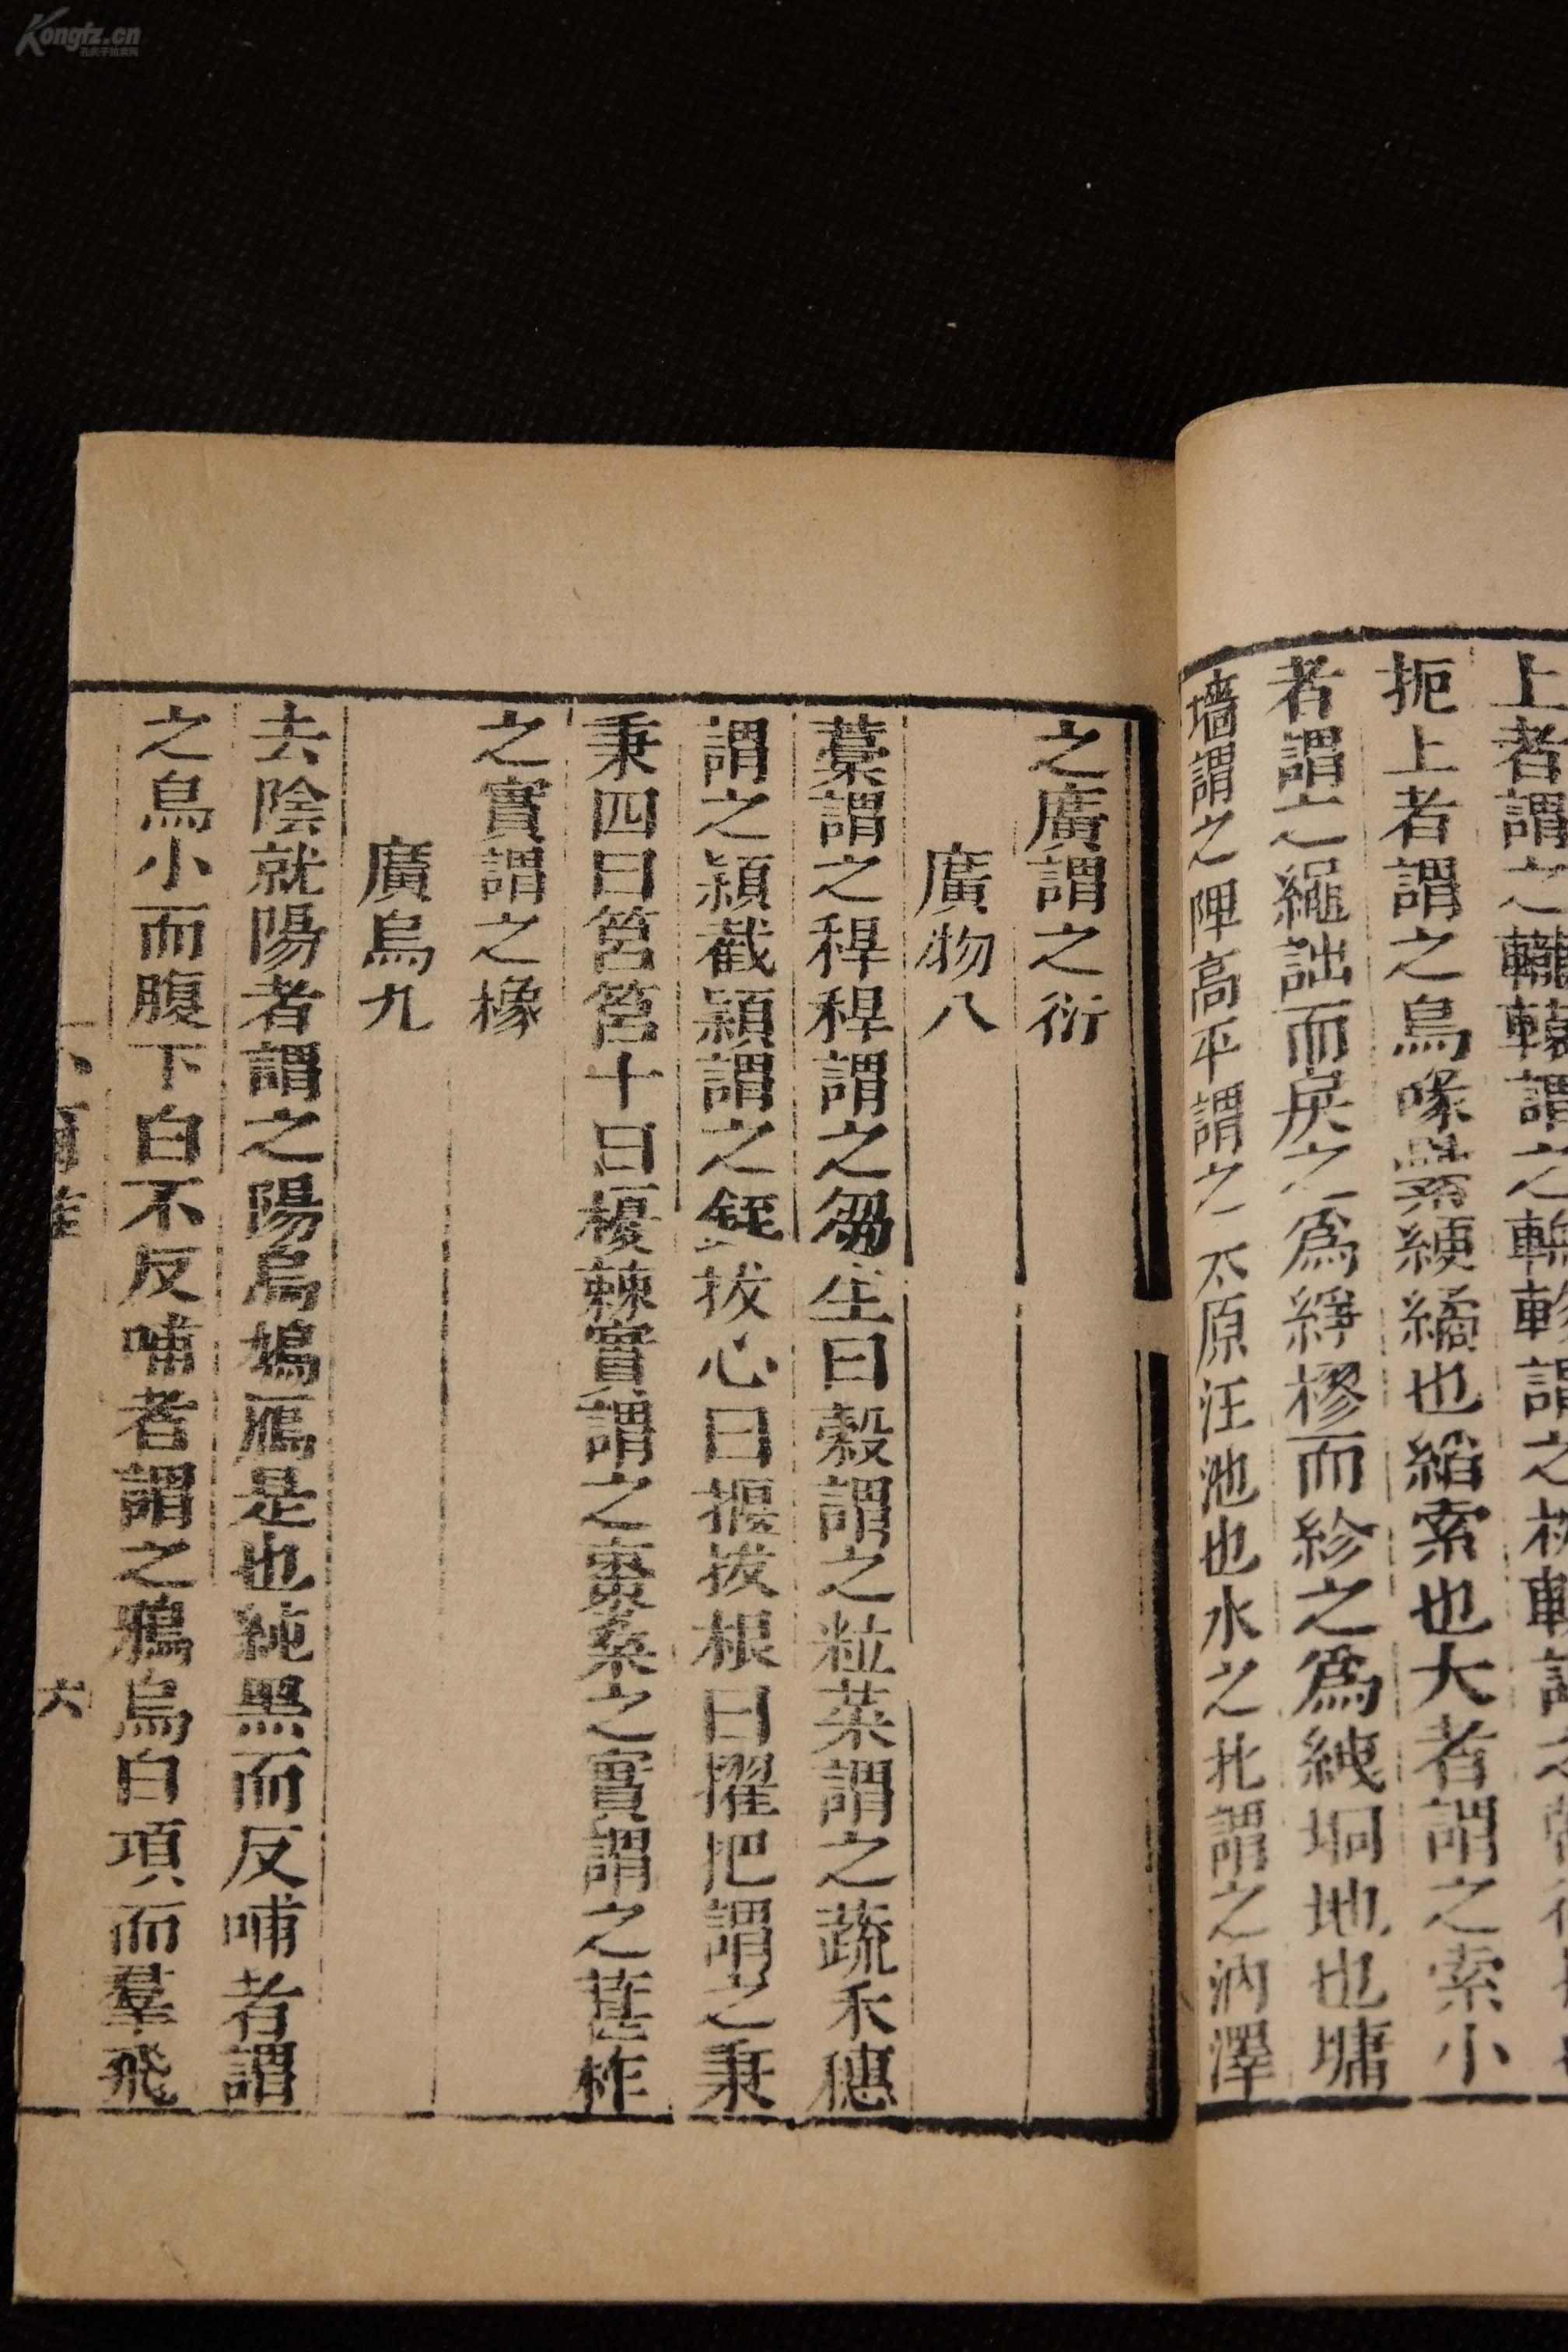 Kongfz.cn
孔夫子拍卖网
上者謂之轙轙謂之輪軫謂之枕較謂之
扼上者謂之烏啄纍綆繘也縚索也大者謂之索小
者謂之繩詘而戾之為綷樛而紾之為緤坰地也墉
墻謂之陴高平謂之太原汪池也水之北謂之汭澤
之廣謂之衍
廣物八
藁謂之稈稈謂之芻生曰穀謂之粒菜謂之蔬禾穗
謂之潁截潁謂之銍拔心曰揠拔根曰擢把謂之秉
秉四曰筥筥十曰稯棘實謂之棗桑之實謂之葚柞
之實謂之橡
廣烏九
去陰就陽者謂之陽烏鳩鴈是也純黑而反哺者謂
之烏小而腹下白不反哺者謂之鴉烏白項而羣飛
小爾雅
六